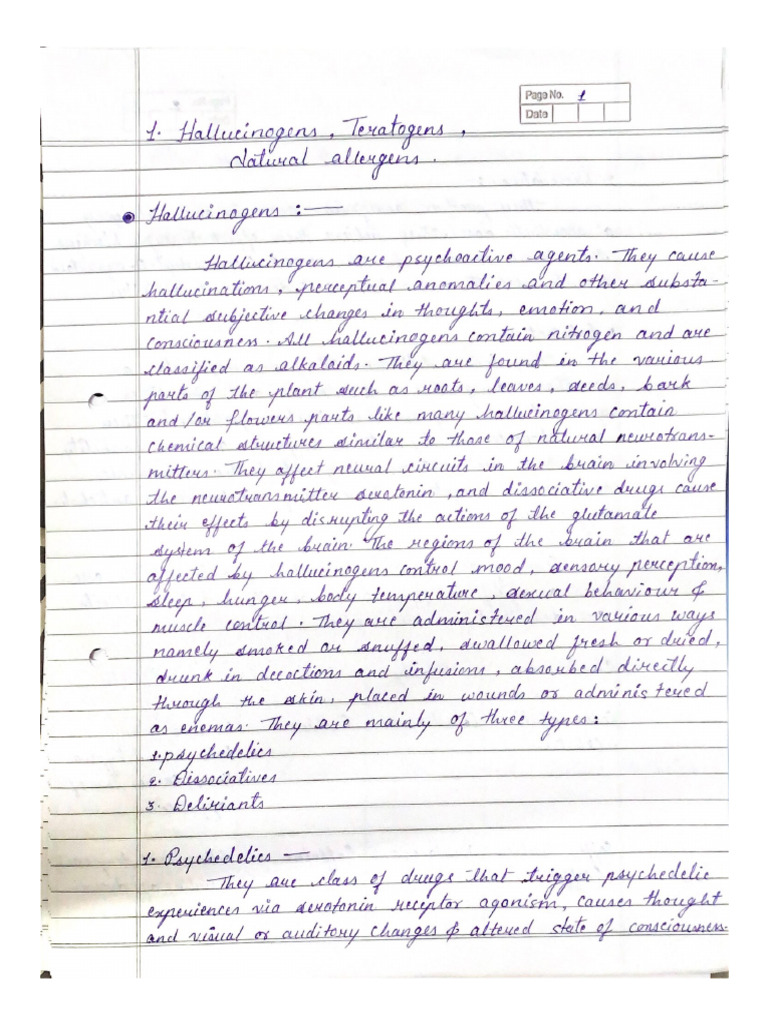 Page No. 1
Date
1. Hallucinogens, Teratogens,
Natural allergens.
Hallucinogens :—
Hallucinogens are psychoactive agents. They cause
hallucinations, perceptual anomalies and other substa-
ntial subjective changes in thoughts, emotion, and
consciousness. All hallucinogens contain nitrogen and are
classified as alkaloids. They are found in the various
parts of the plant such as roots, leaves, seeds, bark
and/or flowers parts like many hallucinogens contain
chemical structures similar to those of natural neurotrans-
mitters. They affect neural circuits in the brain involving
the neurotransmitter serotonin, and dissociative drugs cause
their effects by disrupting the actions of the glutamate
system of the brain. The regions of the brain that are
affected by hallucinogens control mood, sensory perception,
sleep, hunger, body temperature, sexual behaviour &
muscle control. They are administered in various ways
namely smoked or snuffed, swallowed fresh or dried,
drunk in decoctions and infusions, absorbed directly
through the skin, placed in wounds or administered
as enemas. They are mainly of three types:
1. psychedelics
2. Dissociatives
3. Deliriants
1. Psychedelics —
They are class of drugs that trigger psychedelic
experiences via serotonin receptor agonism, causes thought
and visual or auditory changes & altered state of consciousness.